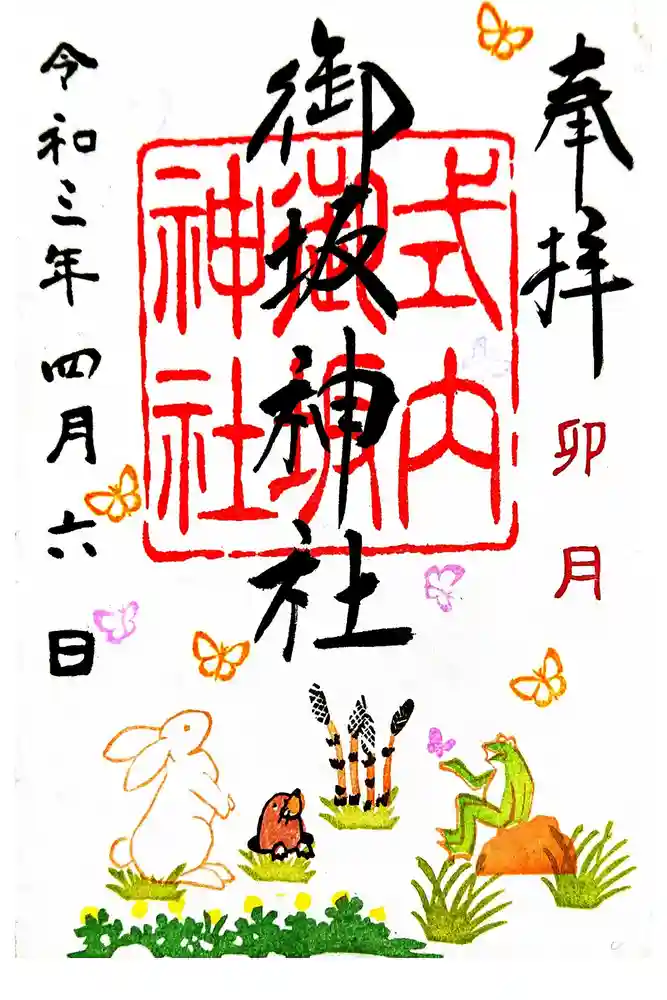 奉拝
卯月
式内
御坂
神社
御坂神社
令和三年四月六日